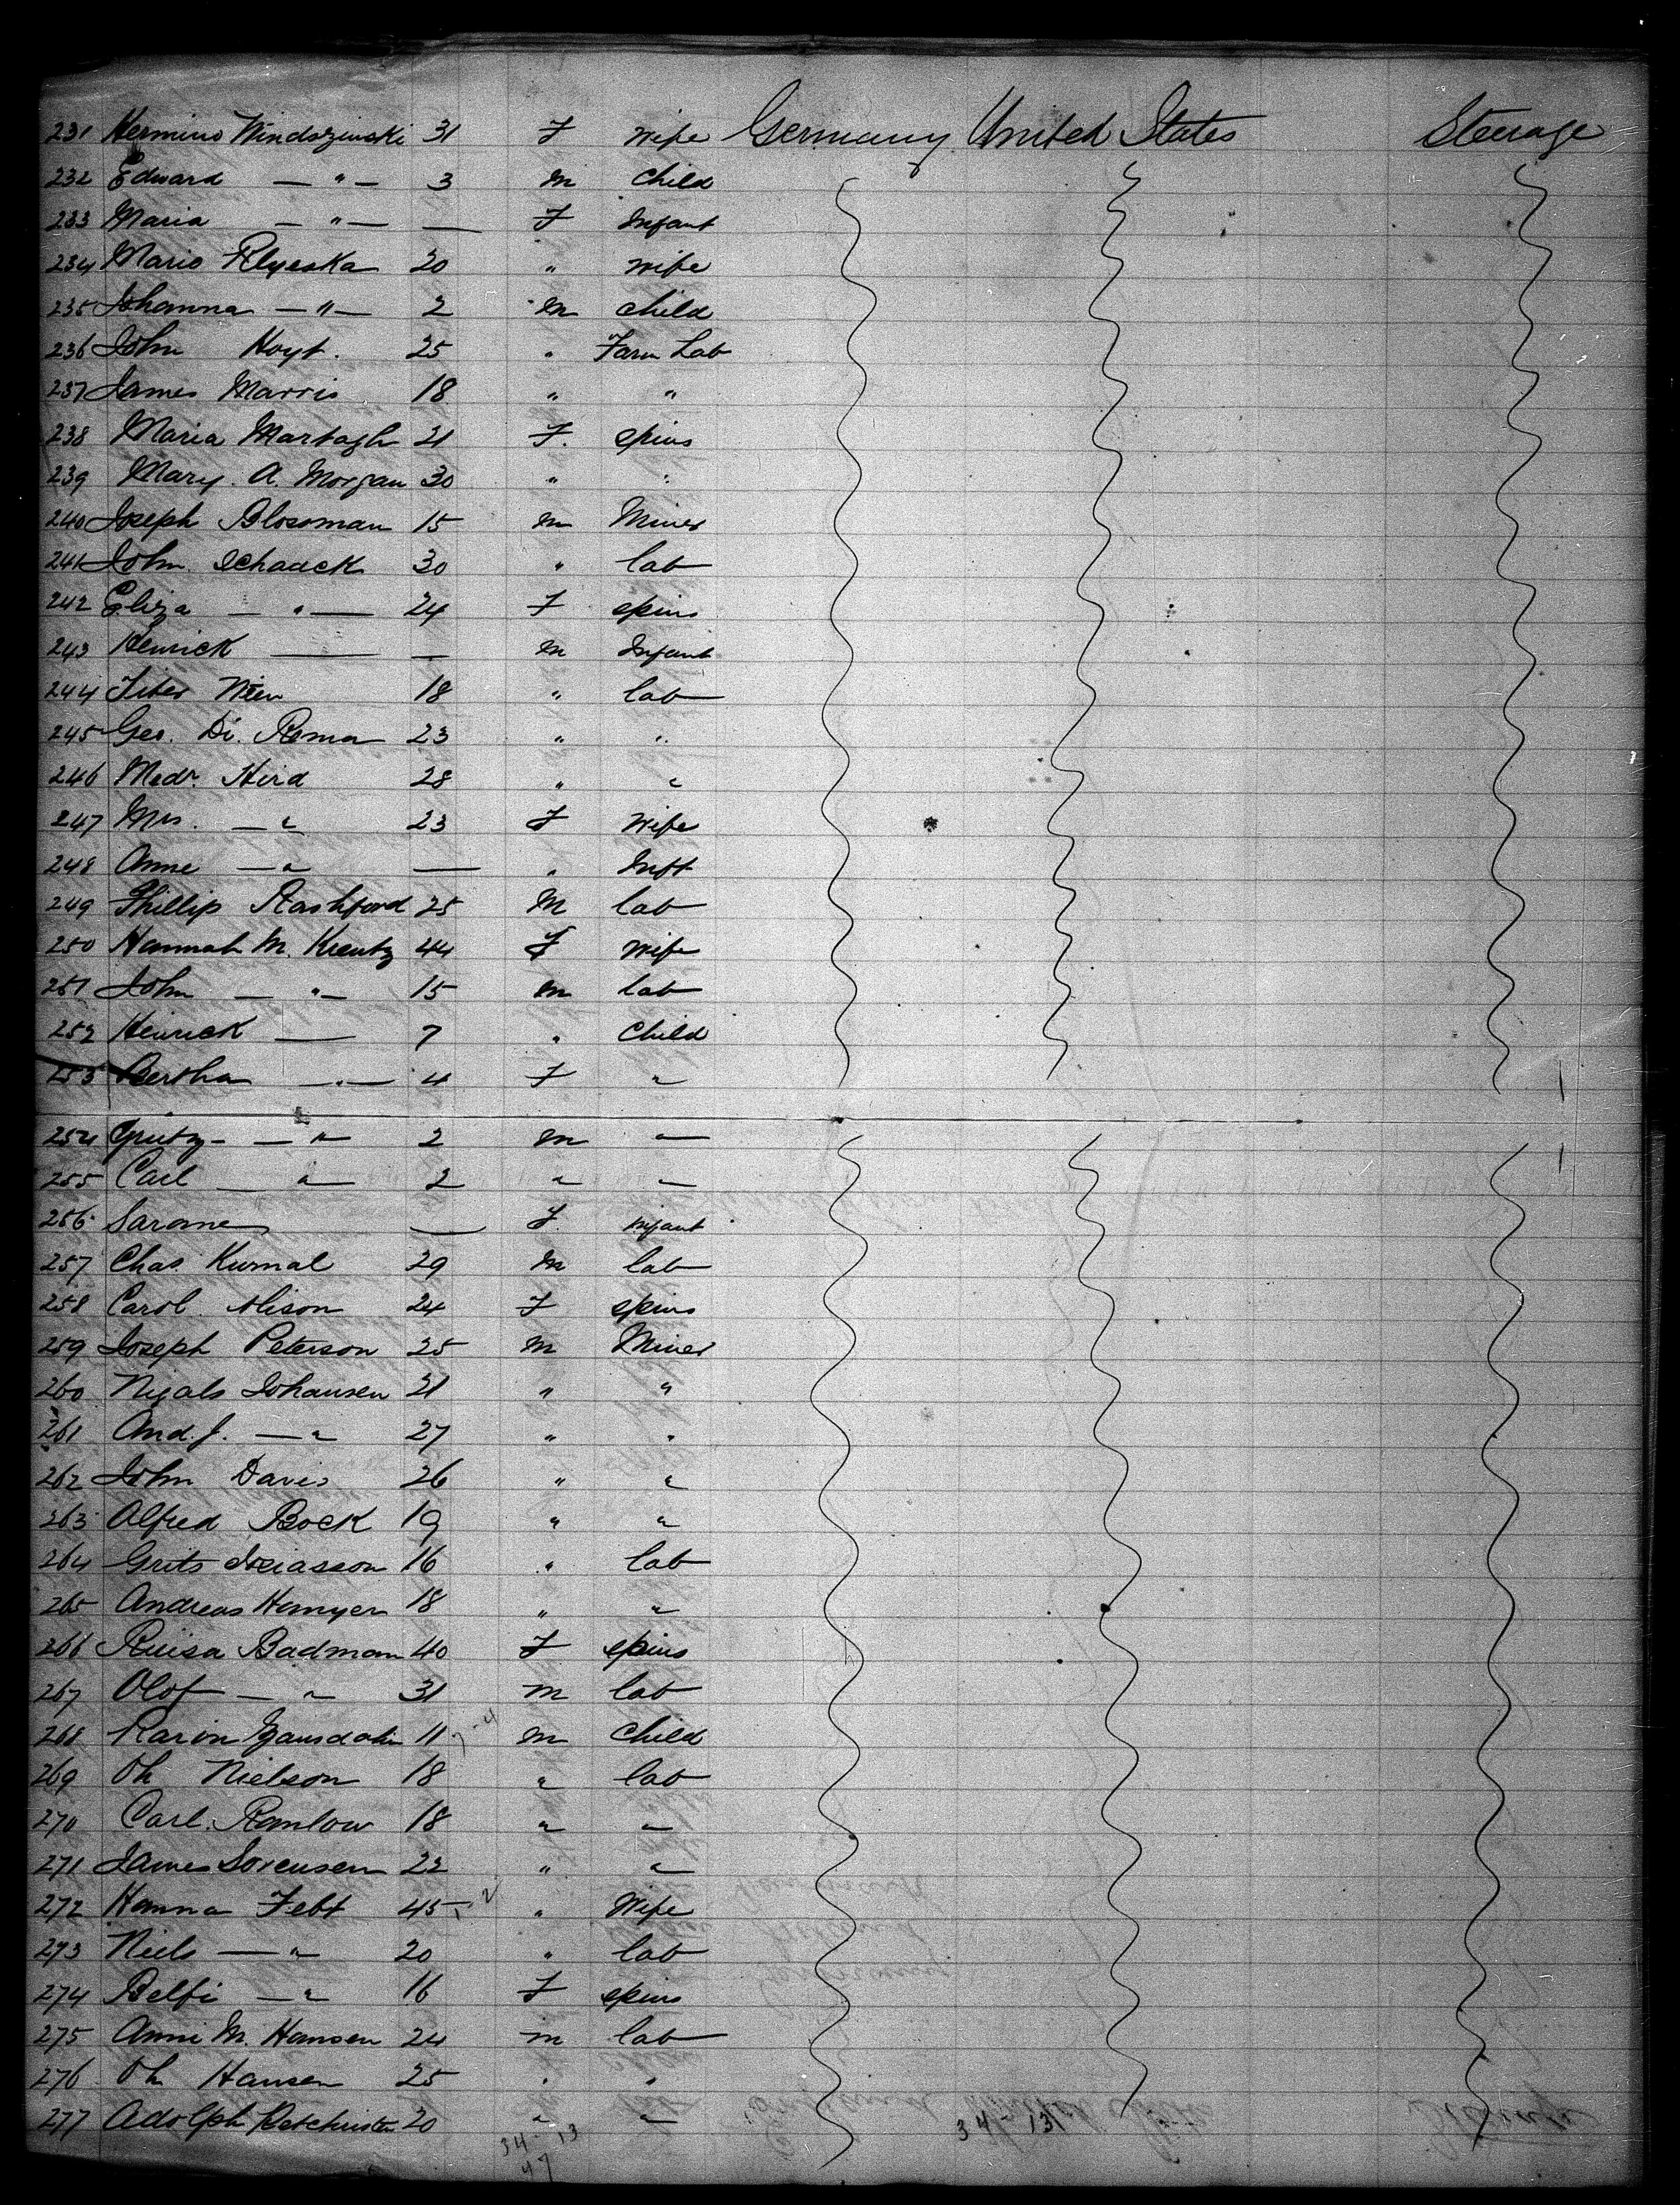 231 Hermino Windszinski 31 F Wife Germany United States Steerage
232 Edward — " — 3 M Child
233 Maria — " — — F Infant
234 Mario Plyeska 20 " Wife
235 Johanna — " — 2 M Child
236 John Hoyt. 25 " Farm Lab
237 James Marris 18 " "
238 Maria Martagh 21 F. Spins
239 Mary. A. Morgan 30 " "
240 Joseph Blossman 15 M Miner
241 John Schauck 30 " lab
242 Eliza — " — 24 F Spins
243 Henrick — — M Infant
244 18 " lab
245 Geo. Di. Roma 23 " "
246 Medr. Hird 28 " "
247 Mrs. — " 23 F Wife
248 Anne — " — " Inft
249 Phillip Rashford 25 M lab
250 Hannah M. Kreutz 44 F Wife
251 John — " — 15 M lab
252 Heinrick — 7 " Child
253 Bertha — " — 4 F "
254 — " 2 M "
255 Carl — " — 2 " "
256 — F. Infant
257 Chas. Kurnal 29 M lab
258 Carol. Alison 24 F Spins
259 Joseph Peterson 25 M Miner
260 Nigals Johansen 21 " "
261 And. J. — " 27 " "
262 John Davis 26 " "
263 Alfred Bock 19 " "
264 Grits 16 " lab
265 Andreas Hamyer 18 " "
266 Ruisa Badman 40 F Spins
267 Olof — " 31 M lab
268 Karin 11 M Child
269 Oh Nielson 18 " lab
270 Carl. Ramlow 18 " "
271 James Sorensen 22 " "
272 Hanna Febt 45 " Wife
273 Niels — " 20 " lab
274 Belfi — " 16 F Spins
275 Anni M. Hansen 24 M lab
276 Oh Hansen 25 " "
277 Adolph 20 " "
34 - 13 34 - 13
47